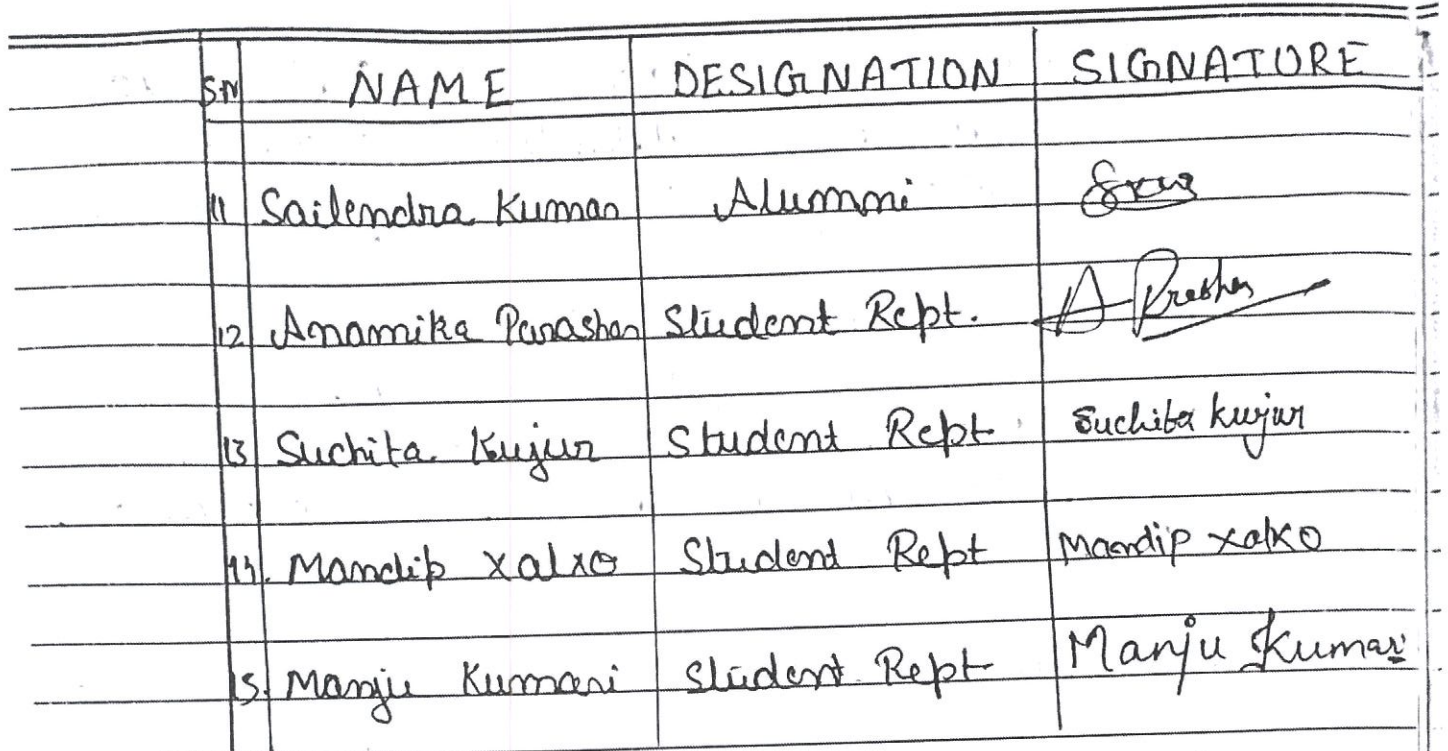 S.N NAME DESIGNATION SIGNATURE
11 Sailendra Kumar Alumni
12 Anamika Parashar Student Rept. A Prashar
13 Suchita Kujur Student Rept Suchita Kujur
14. Mandip Xalxo Student Rept Mandip Xalxo
15. Manju Kumari Student Rept Manju Kumari